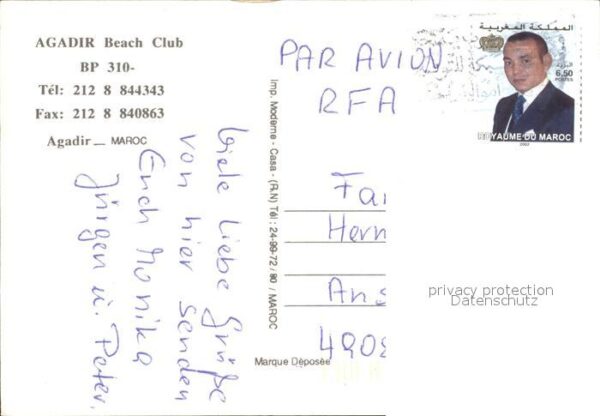 AGADIR Beach Club
BP 310-
Tél: 212 8 844343
Fax: 212 8 840863
Agadir _ MAROC
Viele liebe Grüße
von hier senden
Euch Monika
Jürgen u. Peter.
Imp. Moderne - Casa - (R.N) Tél : 24-99-72 / 80 / MAROC
Marque Déposée
PAR AVION
RFA
المملكة المغربية
6,50
POSTES
ROYAUME DU MAROC
2002
Fa
Her
An
490
privacy protection
Datenschutz